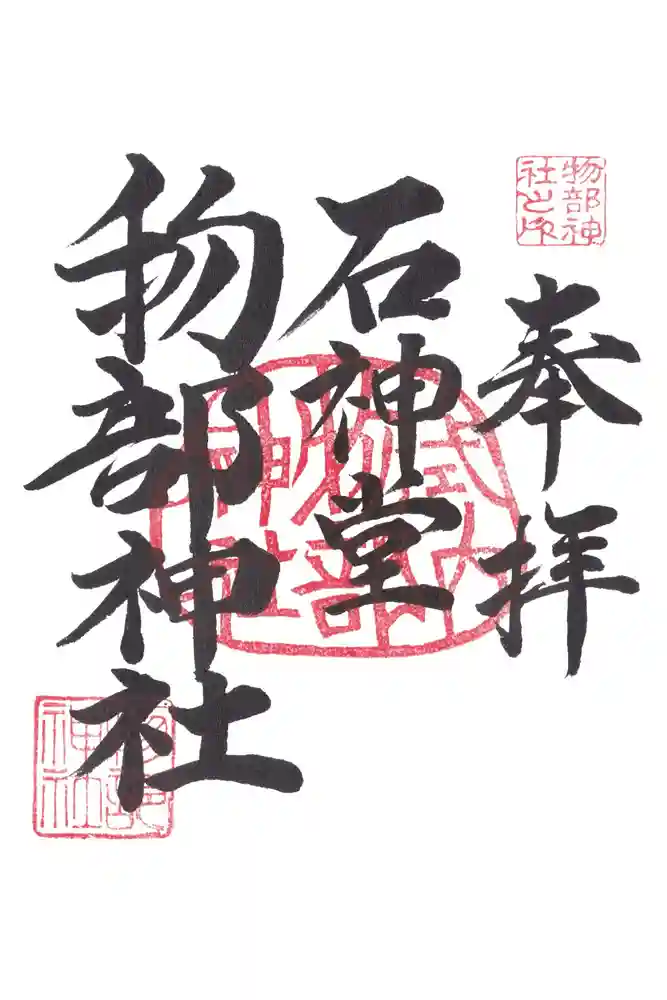 奉拝
石神堂
物部神社
物部神
社之印
式内
物部
神社
物部
神社